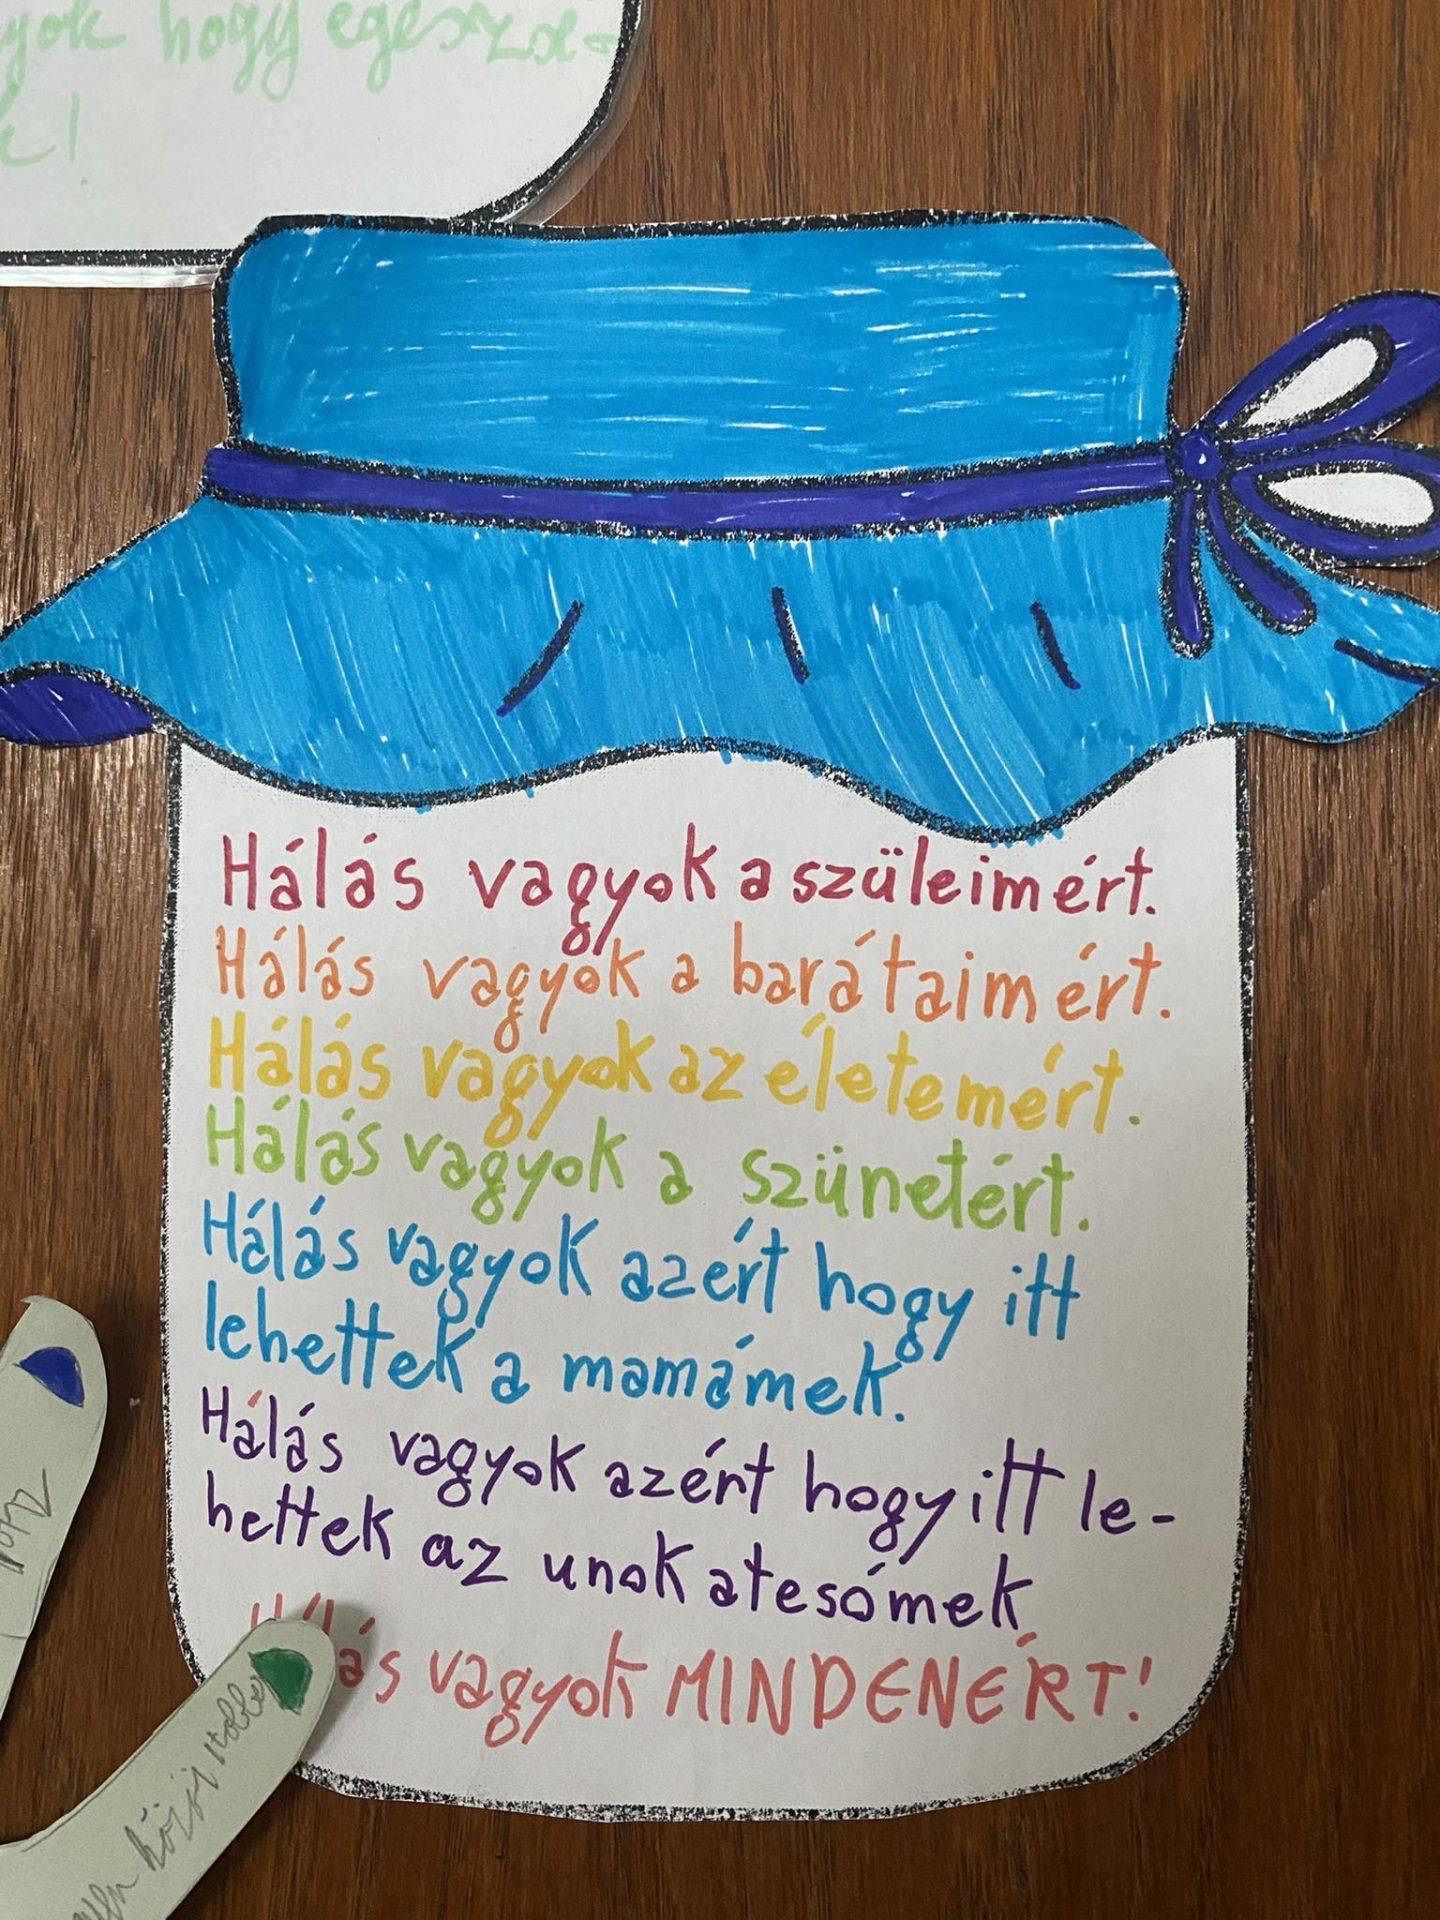 hogy egészsé-
k!
Hálás vagyok a szüleimért.
Hálás vagyok a barátaimért.
Hálás vagyok az életemért.
Hálás vagyok a szünetért.
Hálás vagyok azért hogy itt
lehettek a mamámek.
Hálás vagyok azért hogy itt le-
hettek az unokatesómek
Hálás vagyok MINDENÉRT!